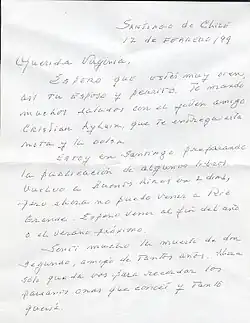 Santiago de Chile
12 de Febrero/99
Querida Virginia,
Espero que estés muy bien,
así tu esposo y perrito. Te mando
muchos saludos con el joven amigo
Cristian Aylwin, que te entrega esta
nota y la bolsa.
Estoy en Santiago preparando
la publicación de algunos libros.
Vuelvo a Buenos Aires en 2 días,
pero ahora no puedo venir a Río
Grande. Espero venir al fin del año
o el verano próximo.
Sentí mucho la muerte de don
Segundo, amigo de tantos años. Ahora
sólo queda vos para recordar los
paisanos onas que conocí y tanto
quería.